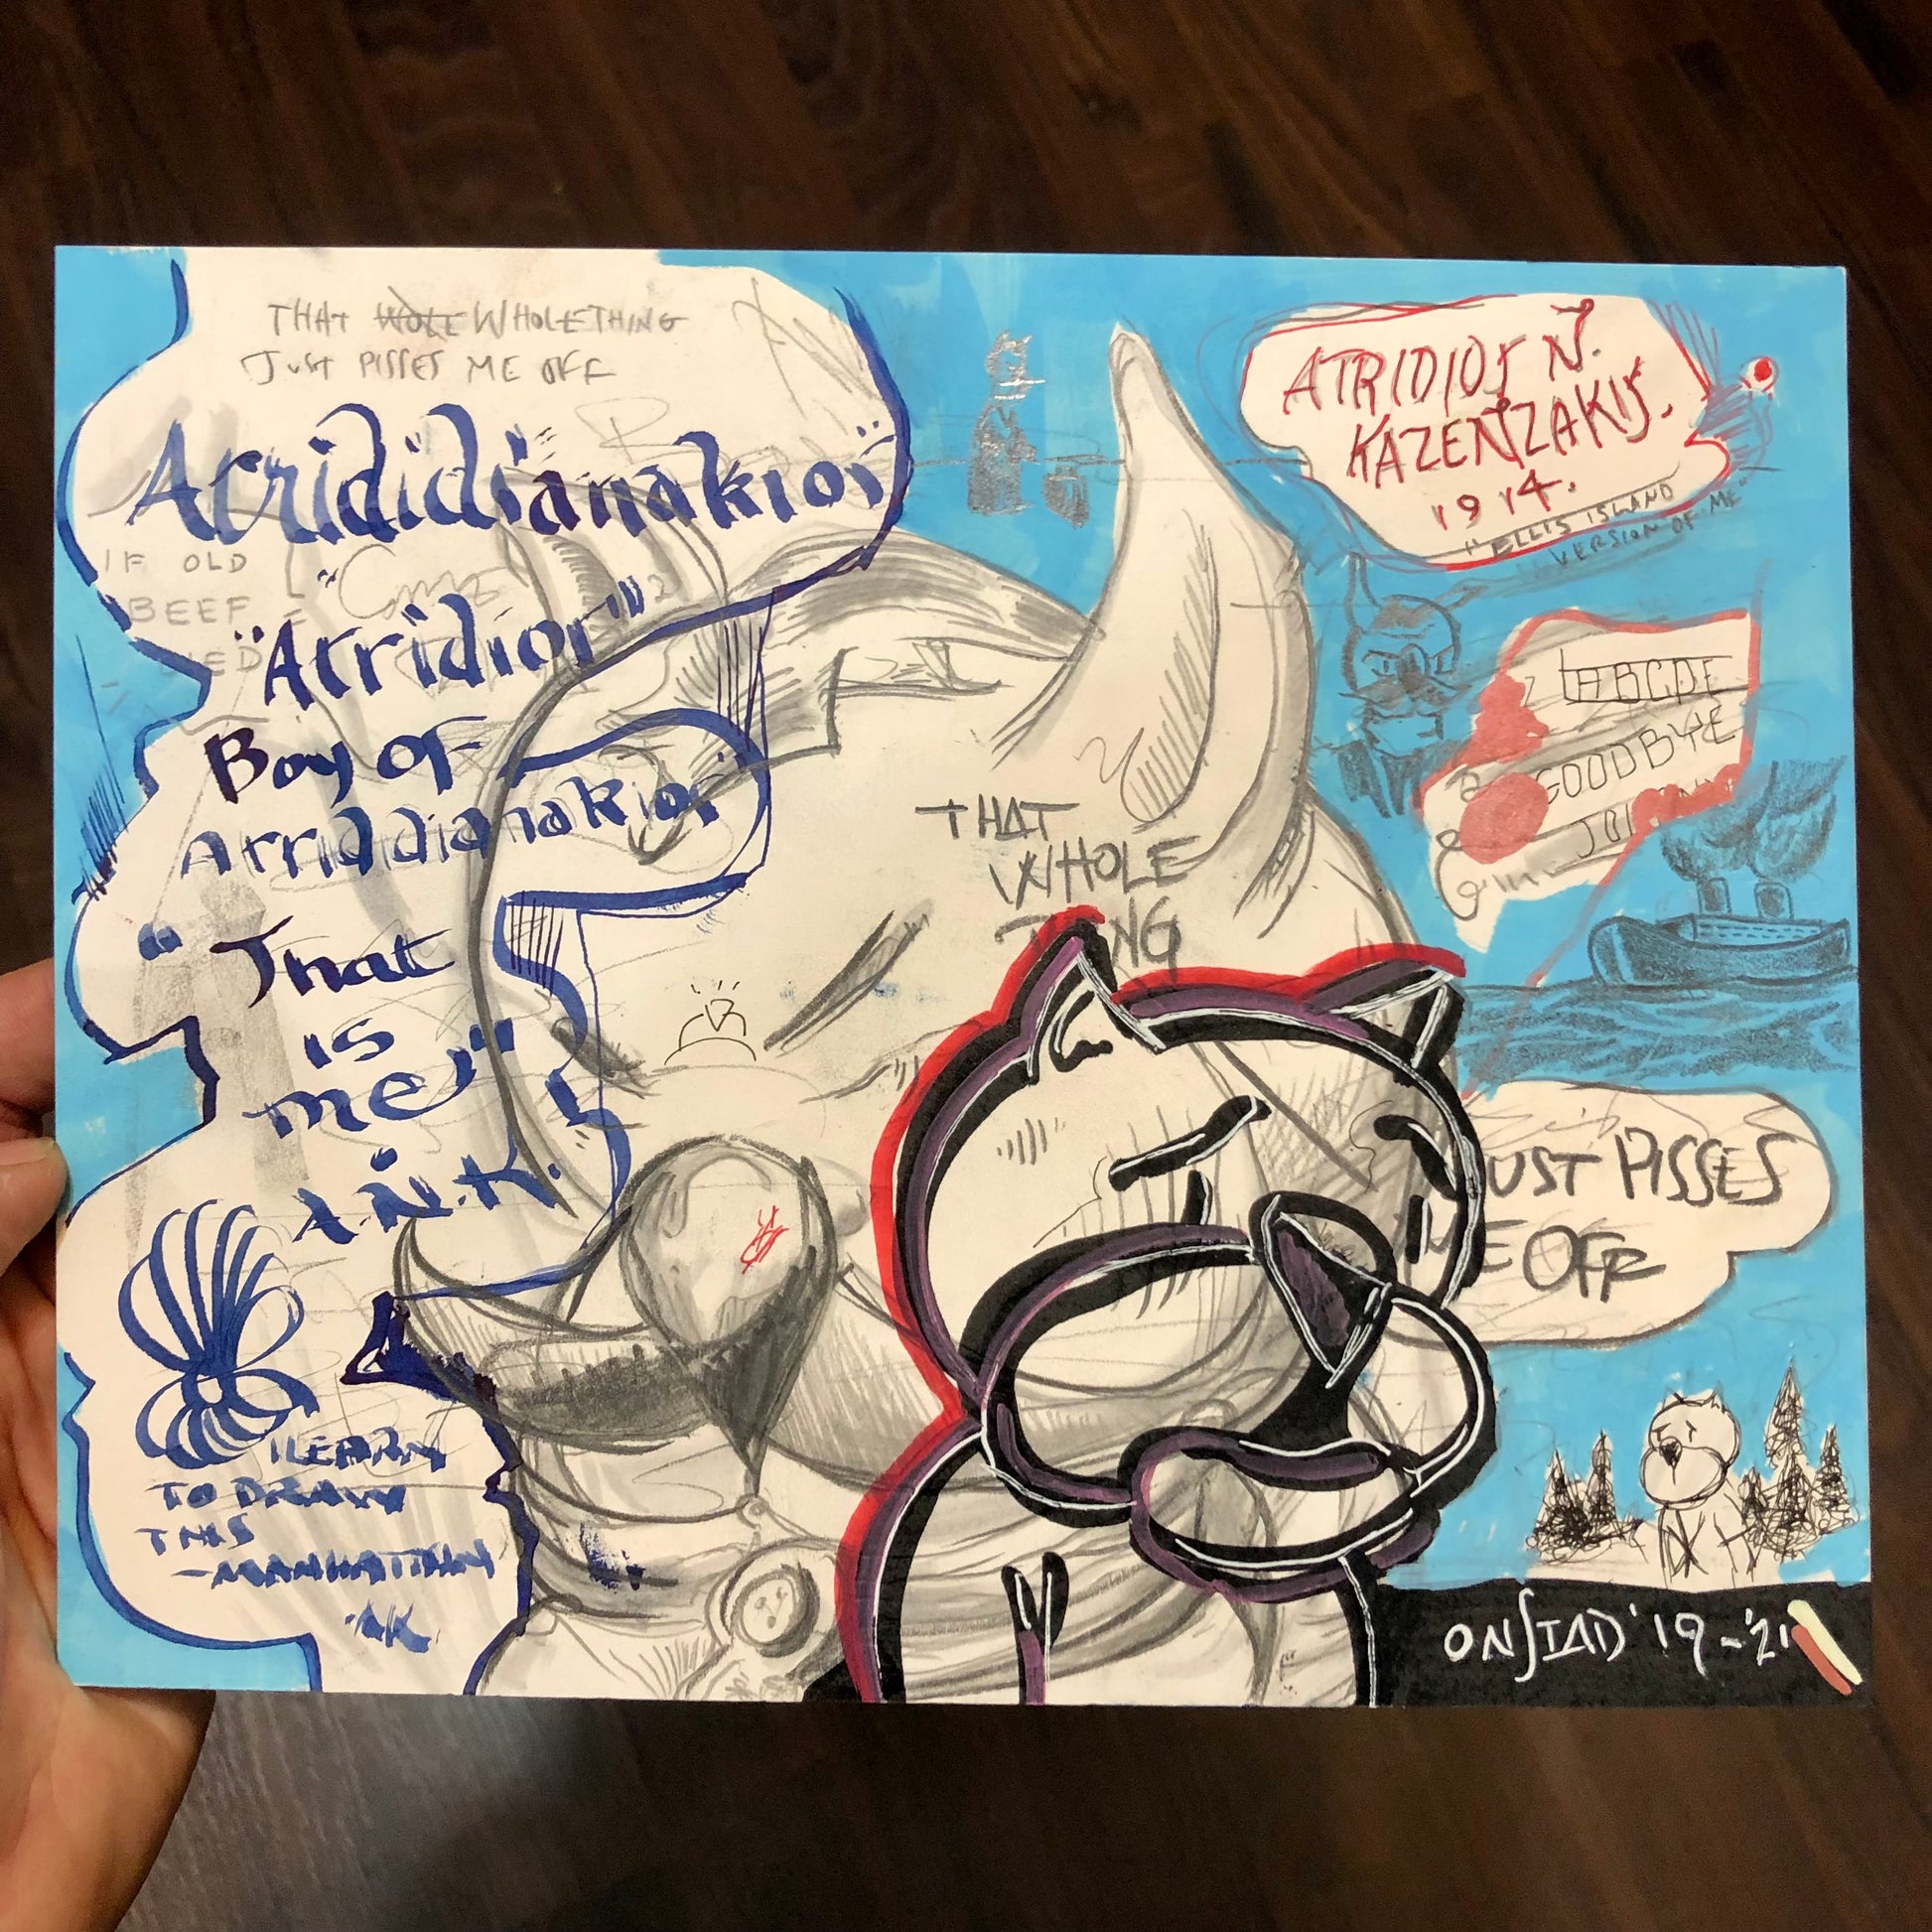 THAT WOLE WHOLE THING
JUST PISSES ME OFF
IF OLD
BEEF
"Atridior"
Boy OF
"That
is
me,"
A.N.K.
I LEARN
TO DRAW
THIS
-MANHATTAN
AK
THAT
WHOLE
ATRIDIOS N.
KAZENZAKIS.
1914.
"ELLIS ISLAND
VERSION OF ME"
ABCDE
GOODBYE
UST PISSES
E OFF
ONSIAD '19-'21